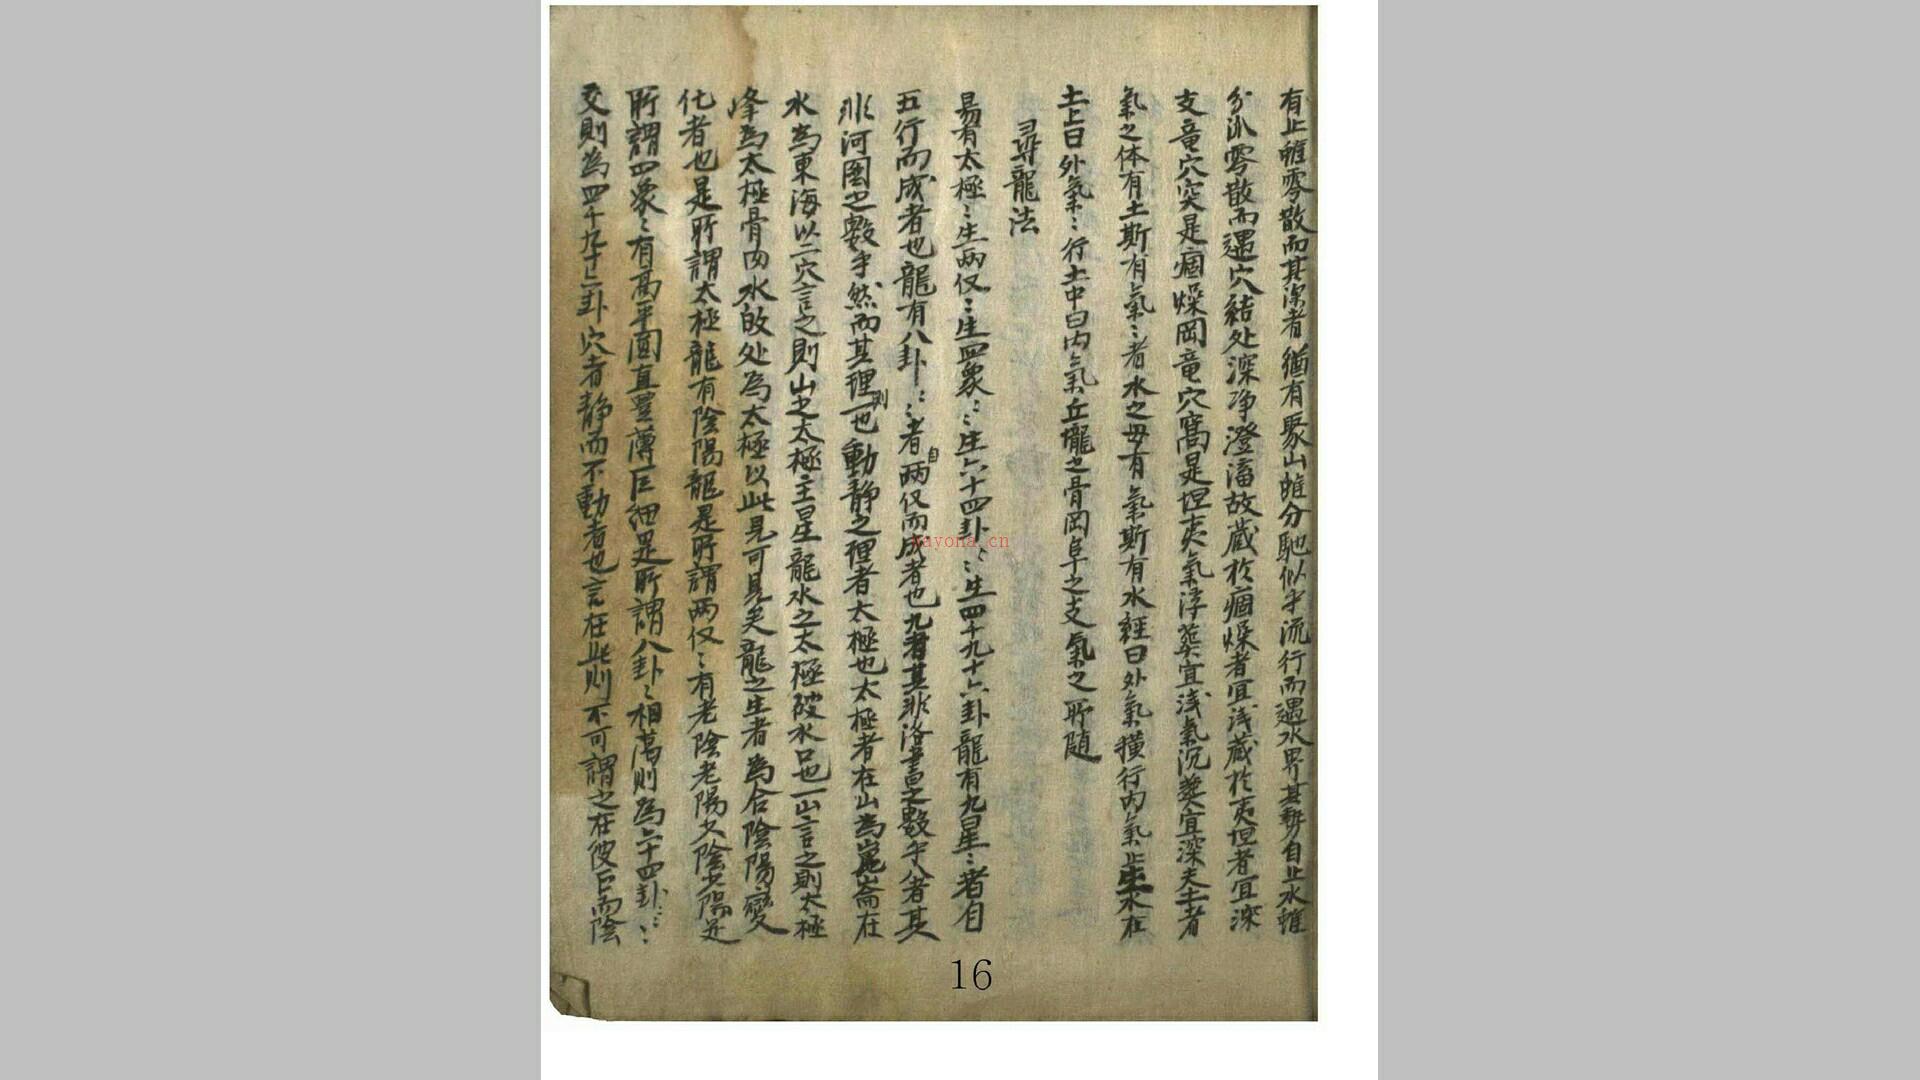 有止雖零散而其潔者猶有聚山雖分馳似乎流行而遇水界其勢自止水雖
分派零散而遇穴結处深净澄滀故藏於痼燥者宜浅藏於夷坦者宜深
支竜穴突是痼燥岡竜穴窩是坦夷氣浮葬宜浅氣沉葬宜深夫土者
氣之体有土斯有氣〻者水之母有氣斯有水經曰外氣横行內氣止生水在
土上曰外氣〻行土中曰內氣丘壠之骨岡阜之支氣之所随
尋龍法
易有太極〻生兩仪〻生四象〻〻生六十四卦〻〻生四千九十六卦龍有九星〻者自
五行而成者也龍有八卦〻〻者自兩仪而成者也九者其非洛書之數乎八者其
非河圖之數乎然而其理則一也動静之理者太極也太極者在山為崑崙在
水為東海以二穴言之則山之太極主星龍水之太極破水口也一山言之則太極
峰為太極骨肉水啟处為太極以此見可見矣龍之生者為合陰陽變
化者也是所謂太極龍有陰陽龍是所謂兩仪〻有老陰老陽少陰少陽是
所謂四象〻有高平圓直豐薄巨細是所謂八卦〻相蕩則為六十四卦〻〻
交則為四千九十六卦穴者静而不動者也言在此則不可謂之在彼后而陰
16
xayona.cn